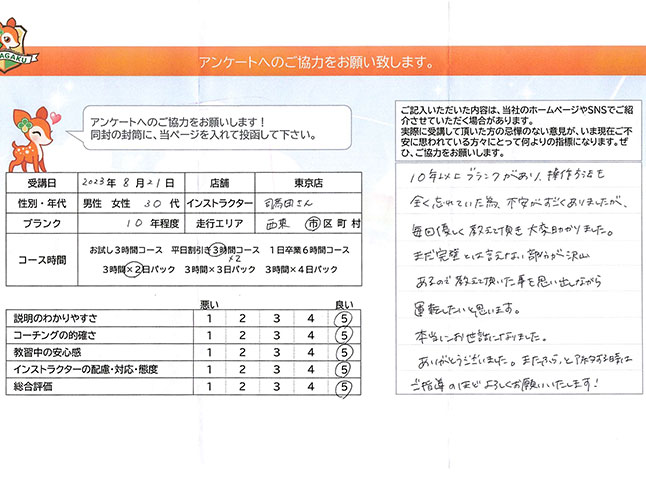 AGAKU
アンケートへのご協力をお願い致します。
アンケートへのご協力をお願いします！
同封の封筒に、当ページを入れて投函して下さい。
ご記入いただいた内容は、当社のホームページやSNSでご紹
介させていただく場合があります。
実際に受講して頂いた方の忌憚のない意見が、いま現在ご不
安に思われている方々にとって何よりの指標になります。ぜ
ひ、ご協力をお願いします。
受講日 2023年 8月 21日 店舗 東京店
性別・年代 男性 女性 30代 インストラクター 司馬田さん
ブランク 10年程度 走行エリア 西東 市区町村
コース時間 お試し3時間コース 平日割引き3時間コース 1日卒業6時間コース
×2
3時間×2日パック 3時間×3日パック 3時間×4日パック
悪い 良い
説明のわかりやすさ 1 2 3 4 5
コーチングの的確さ 1 2 3 4 5
教習中の安心感 1 2 3 4 5
インストラクターの配慮・対応・態度 1 2 3 4 5
総合評価 1 2 3 4 5
10年以上ブランクがあり、操作方法を
全く忘れていた為、不安がすごくありましたが、
毎回優しく教えて頂き大変助かりました。
まだ完璧とは言えない部分が沢山
あるので教えて頂いた事を思い出しながら
運転したいと思います。
本当にお世話になりました。
ありがとうございました。また 時は
ご指導のほどよろしくお願いいたします！